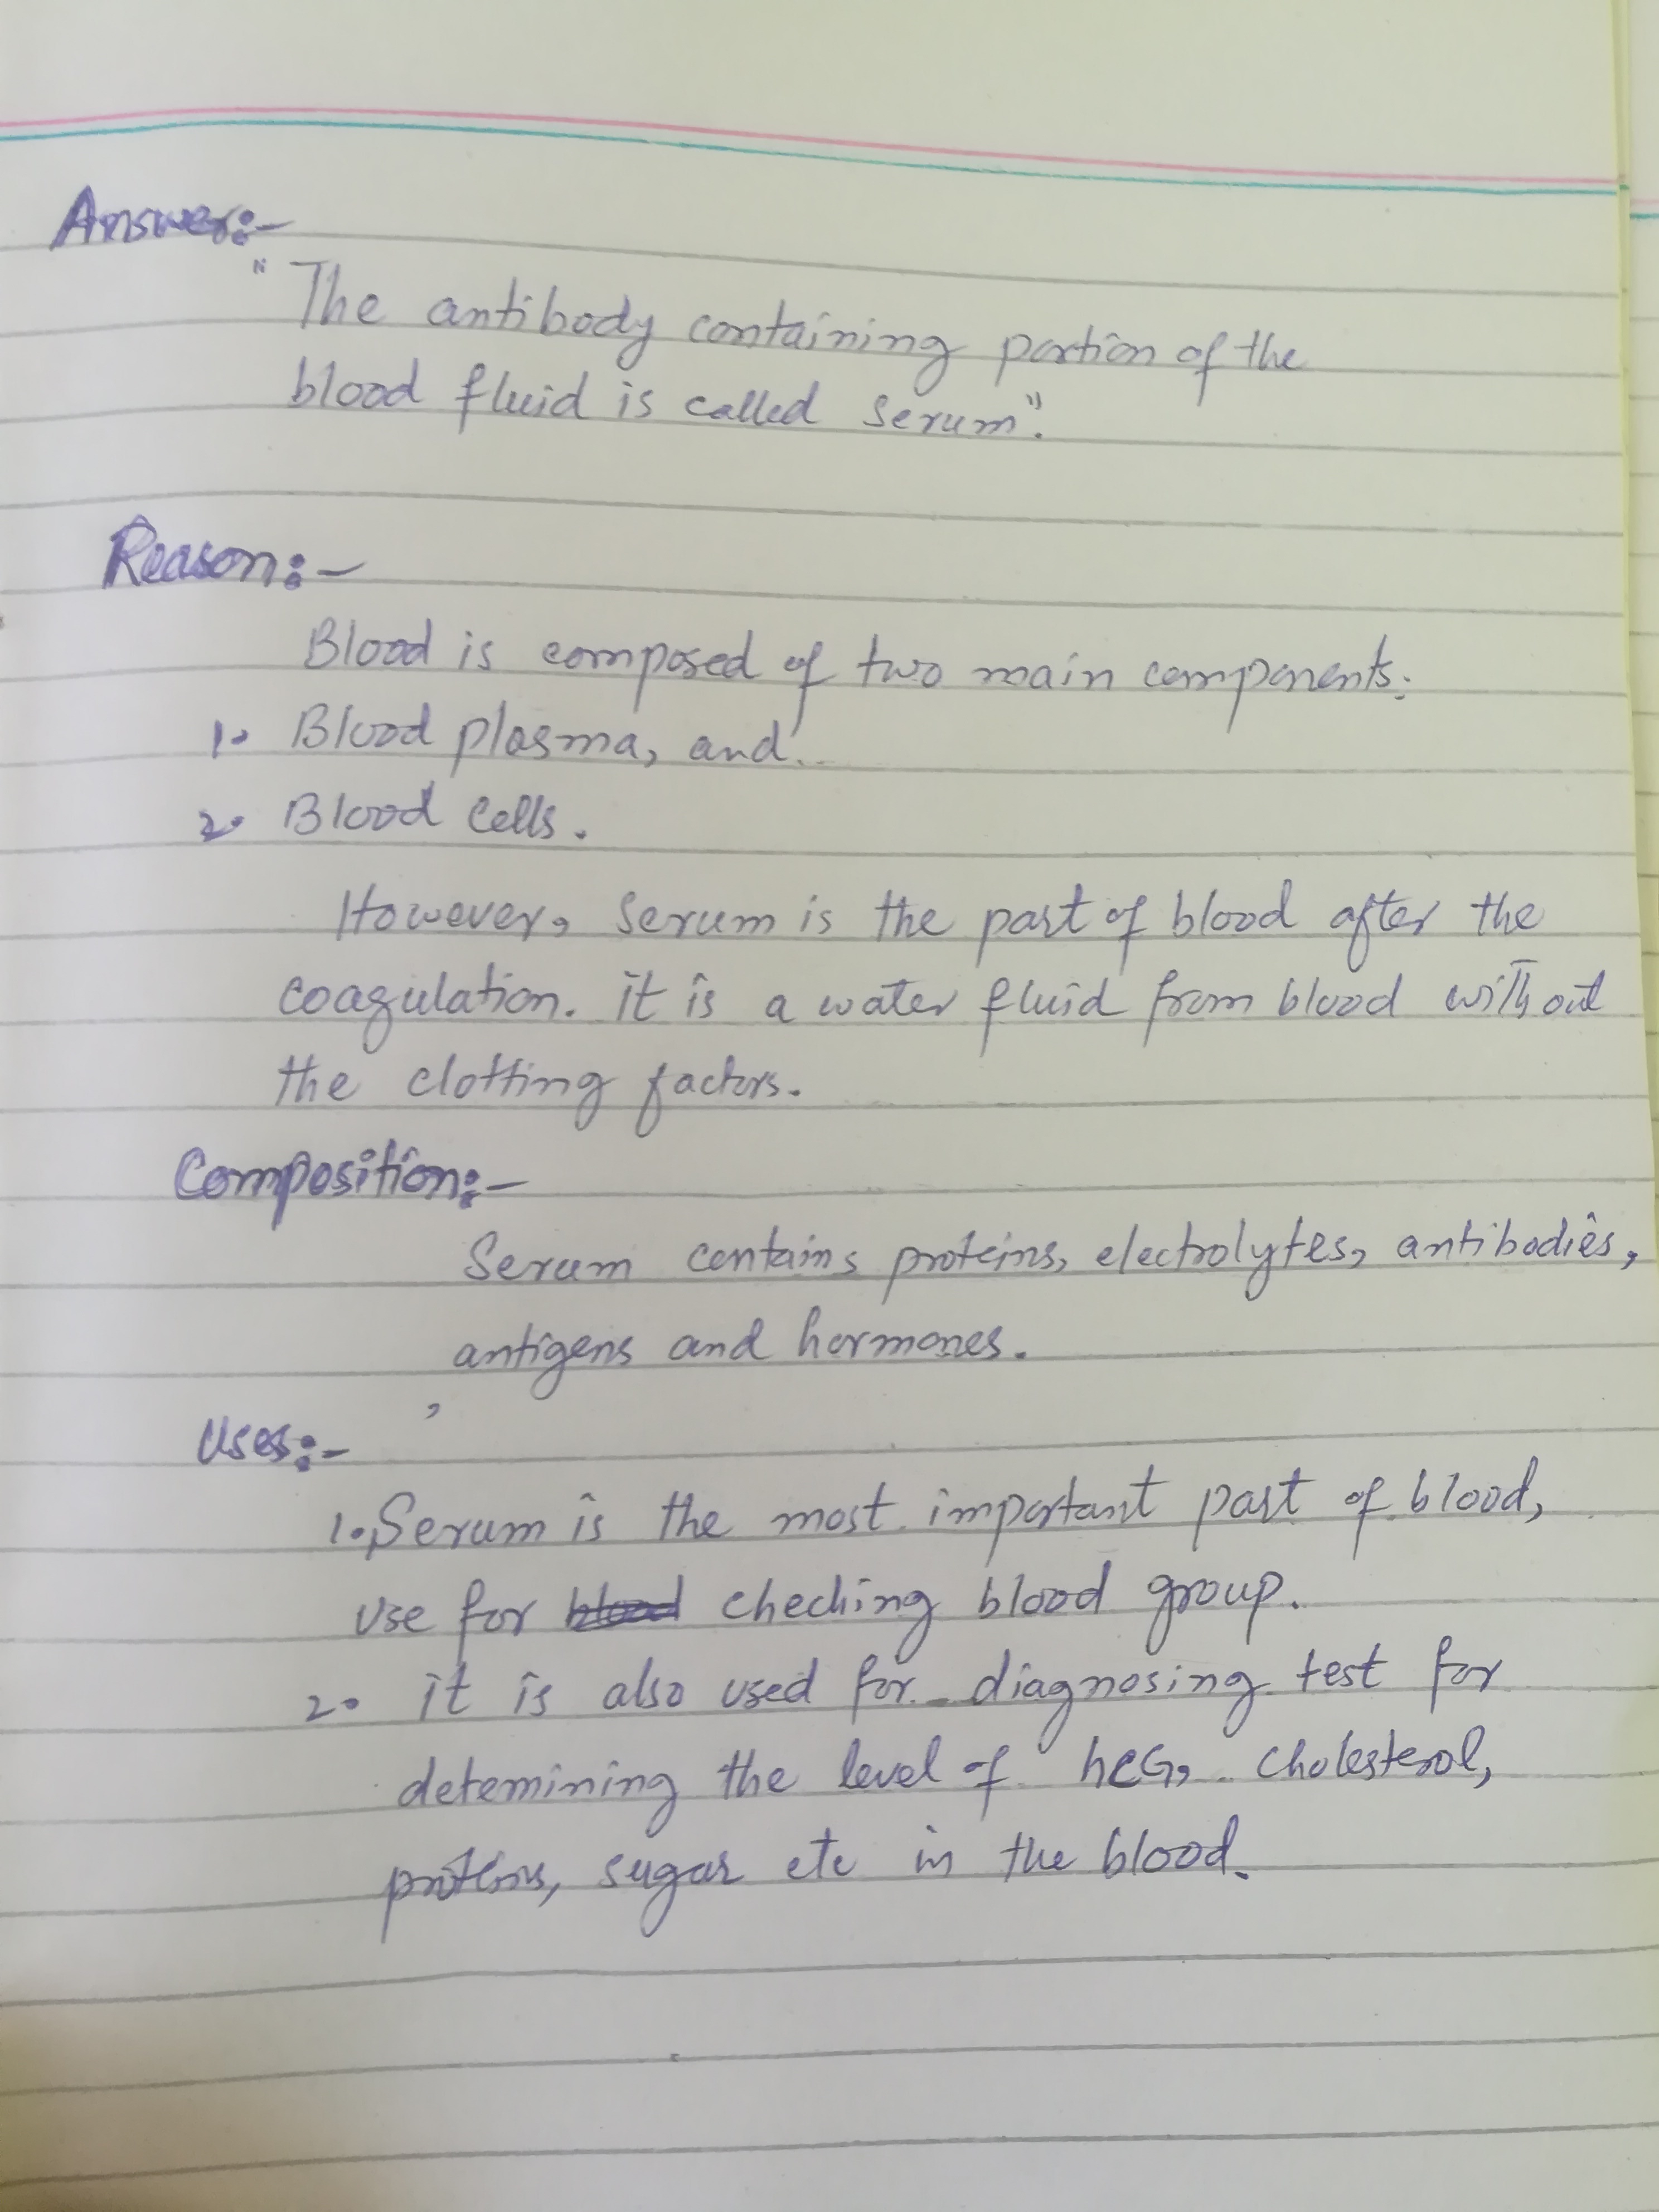 Answer:-
"The antibody containing portion of the
blood fluid is called serum".
Reason:-
Blood is composed of two main components.
1. Blood plasma, and
2. Blood cells.
However, serum is the part of blood after the
coagulation. it is a water fluid from blood without
the clotting factors.
Composition:-
Serum contains proteins, electrolytes, antibodies,
antigens and hormones.
Uses:-
1. Serum is the most important part of blood,
use for blood checking blood group.
2. it is also used for diagnosing test for
detemining the level of hCG, cholesterol,
proteins, sugar etc in the blood.